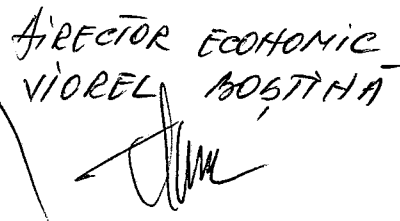 DIRECTOR ECONOMIC
VIOREL BOȘTINĂ